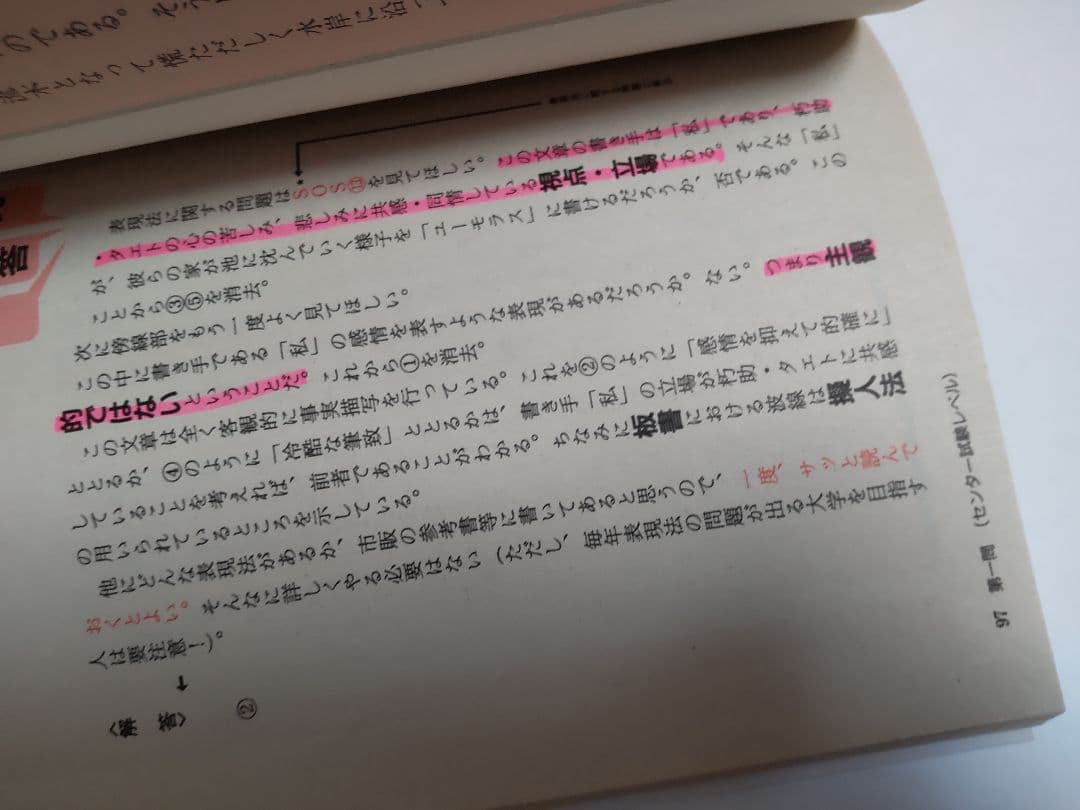 のである。そう
落水となって慌ただしく水岸に沿っ
答
表現法に関する問題はSOS⑬を見てほしい。この文章の書き手は「私」であり、朽助
・タエトの心の苦しみ、悲しみに共感・同情している視点・立場である。そんな「私」
が、彼らの家が池に沈んでいく様子を「ユーモラス」に書けるだろうか、否である。この
ことから③⑤を消去。
次に傍線部をもう一度よく見てほしい。
この中に書き手である「私」の感情を表すような表現があるだろうか。ない。つまり主観
的ではないということだ。これから①を消去。
この文章は全く客観的に事実描写を行っている。これを②のように「感情を抑えて的確に」
ととるか、④のように「冷酷な筆致」ととるかは、書き手「私」の立場が朽助・タエトに共感
していることを考えれば、前者であることがわかる。ちなみに板書における波線は擬人法
の用いられているところを示している。
他にどんな表現法があるか、市販の参考書等に書いてあると思うので、一度、サッと読んで
おくとよい。そんなに詳しくやる必要はない（ただし、毎年表現法の問題が出る大学を目指す
人は要注意！）。
〈解答〉
②
97 第一問（センター試験レベル）